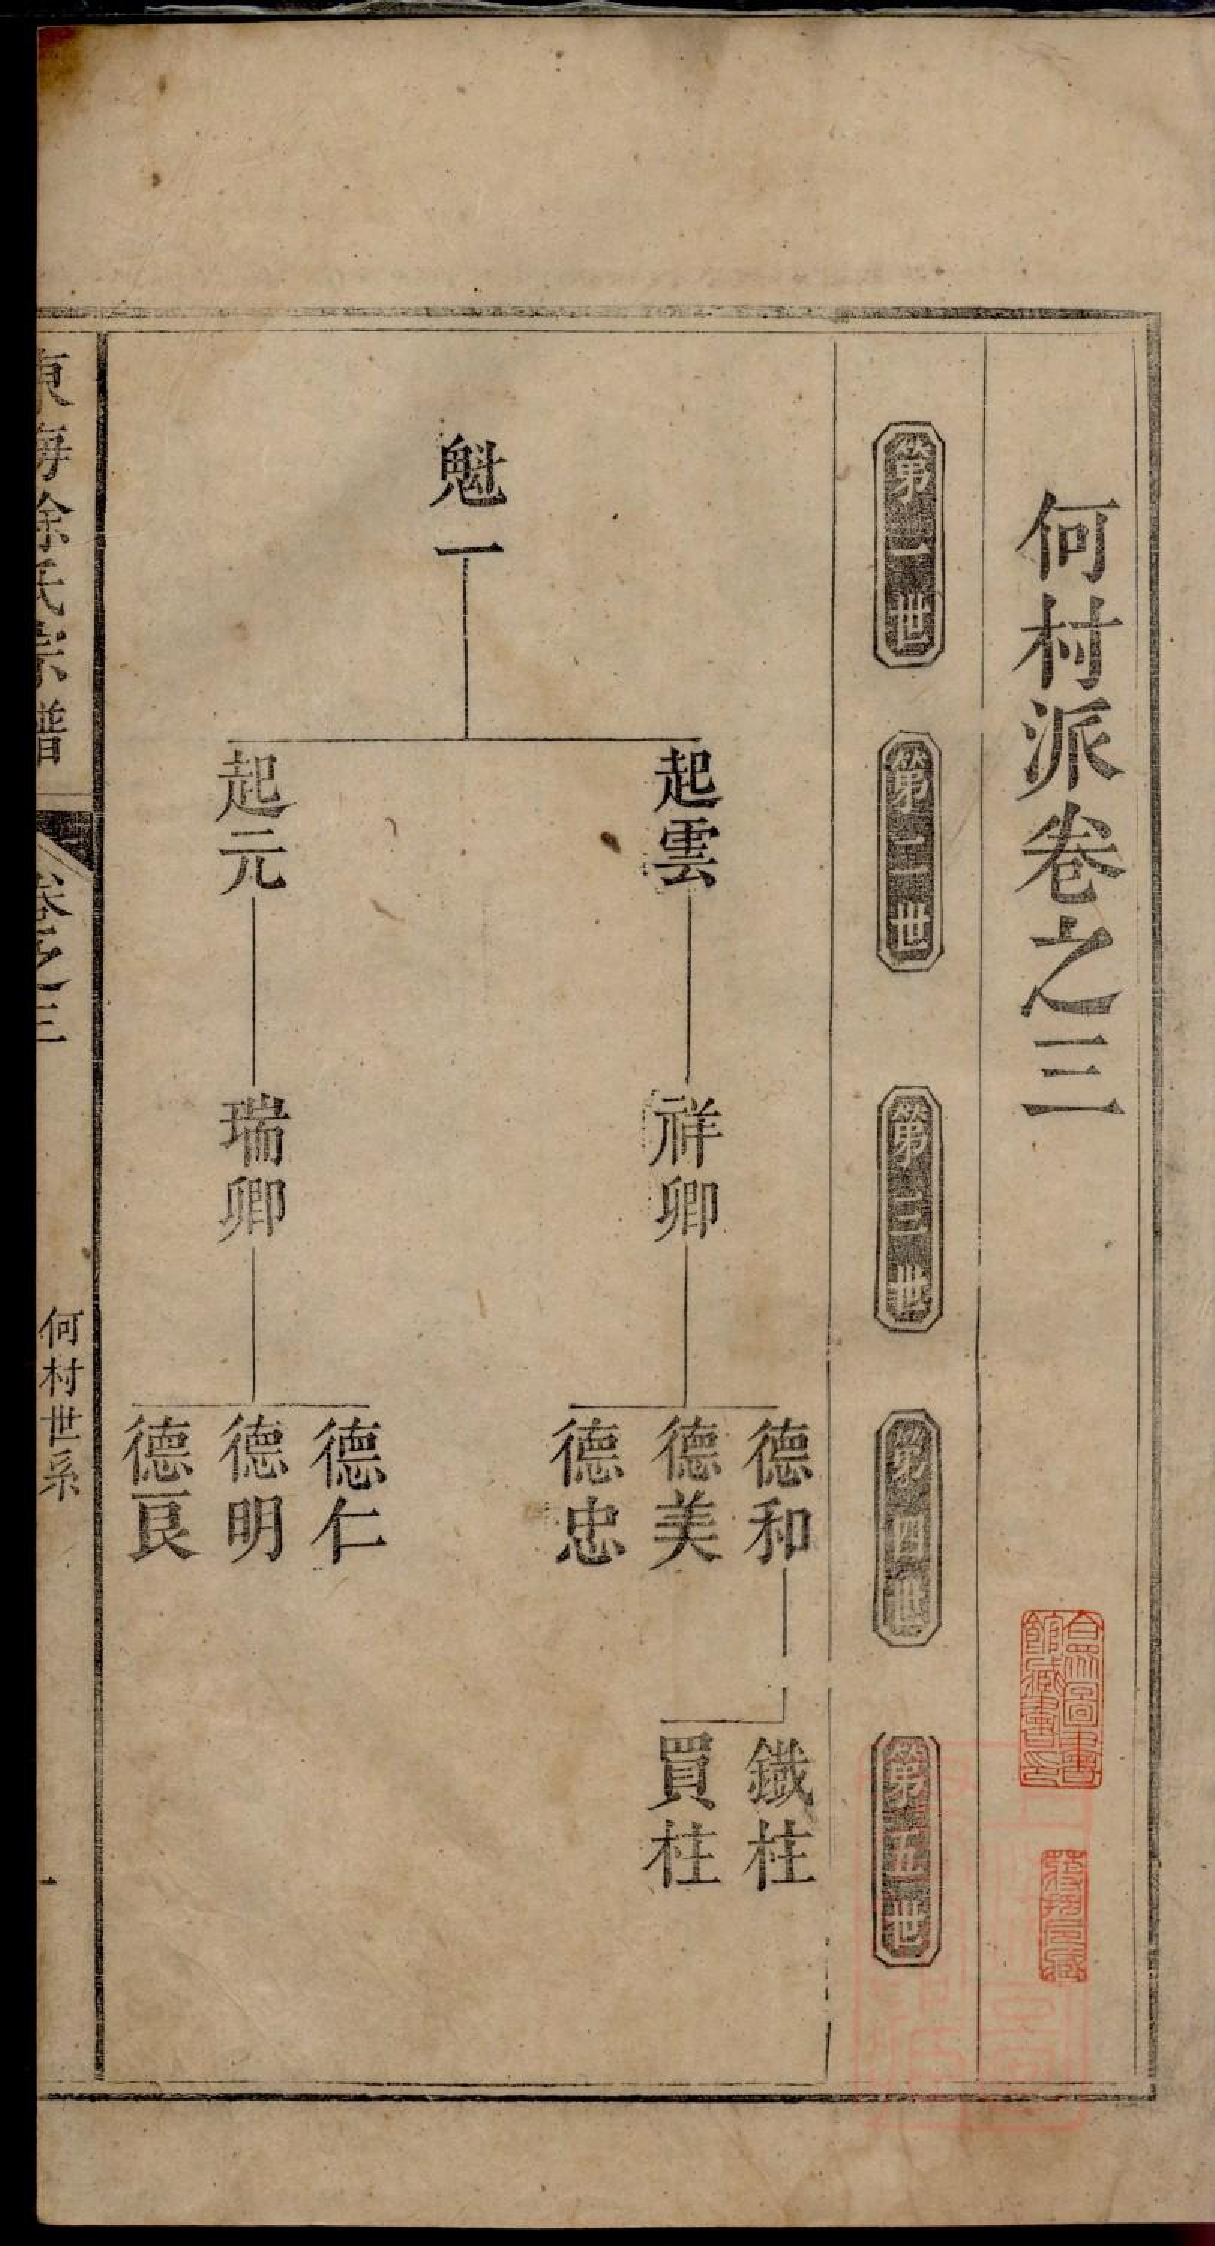 何村派卷之三
第一世
第二世
第三世
第四世
第五世
魁一
起雲
起元
祥卿
瑞卿
德和
德美
德忠
德仁
德明
德良
鐵柱
買柱
東海徐氏宗譜
卷之三
何村世系
一
合眾圖書館藏書印